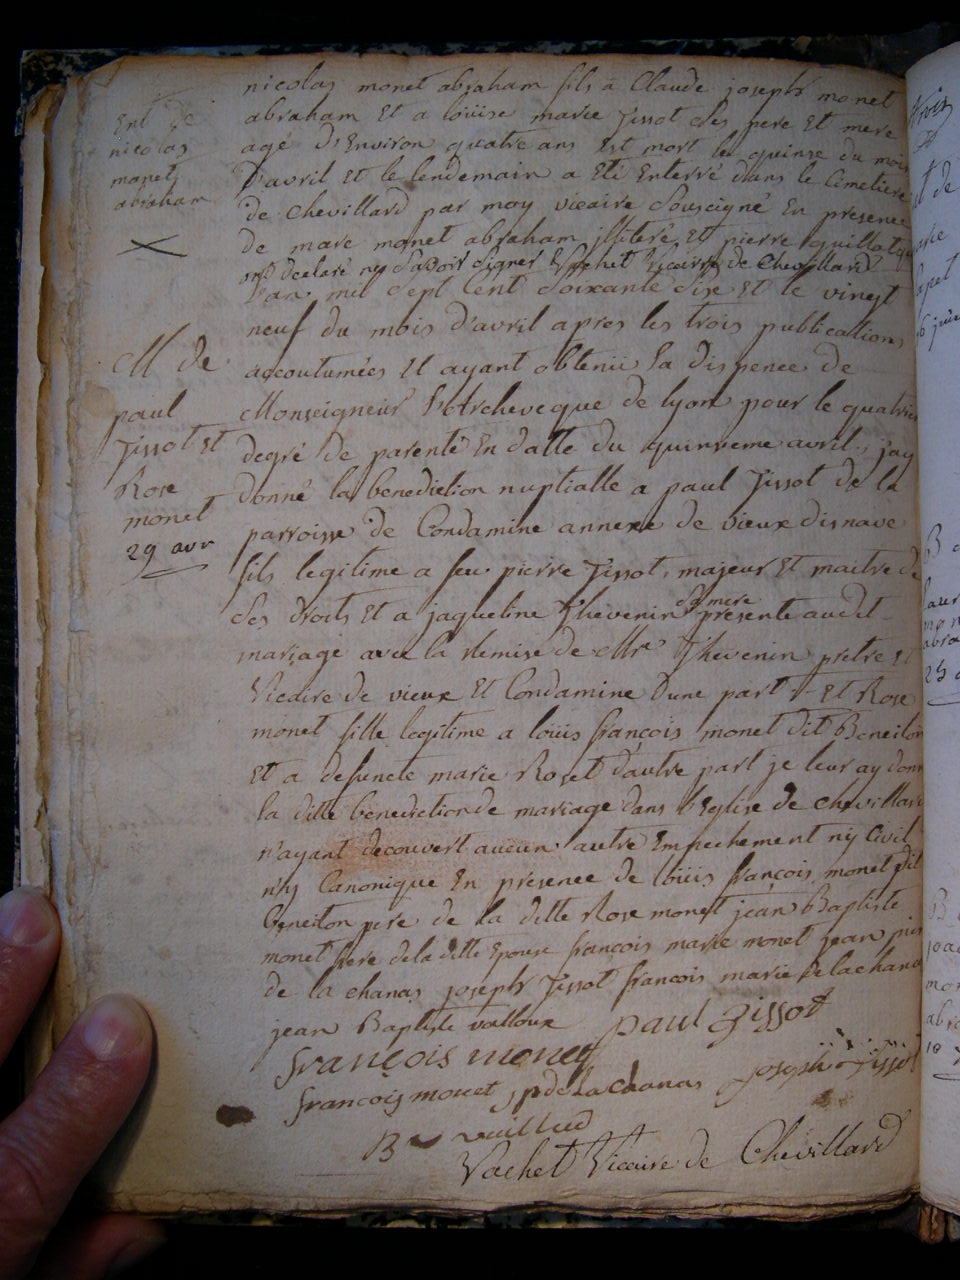 nicolas monet abraham fils a Claude joseph monet
abraham Et a loüise marie Jissot ses pere Et mere
agé D'Environ quatre ans Est mort le quinse du mois
D'avril Et le lendemain a Eté Enterré dans le Cimetiere
de Chevillard par moy vicaire Sousigné En presence
de marc monet abraham illiteré Et pierre guillot qui
ont declaré ny savoir signer Vachet Vicaire de Chevillard
Ent de
nicolas
monet
abraham
L'an mil sept Cent Soixante Six Et le vingt
neuf du mois d'avril apres les trois publications
accoutumées Et ayant obtenü la dispence de
Monseigneur L'Archeveque de lyon pour le quatrieme
degré de parenté En datte du quinsieme avril, j'ay
donné la benediction nuptialle a paul Jissot de la
parroisse de Condamine annexe de vieux disnave
fils legitime a feu pierre Jissot, majeur Et maitre de
ses droits Et a jaqueline Thevenin sa mere presente audit
mariage avec la Remise de Mre Thevenin pretre Et
Vicaire de vieux Et Condamine Dune part Et Rose
monet fille legitime a loüis françois monet dit Beneiton
Et a defuncte marie Roset d'autre part je leur ay donné
la ditte benediction de mariage dans l'Eglise de Chevillard
n'ayant decouvert aucun autre Empechement ny Civil
ny Canonique En presence de loüis françois monet dit
Beneiton pere de la ditte Rose monet jean Baptiste
monet frere de la ditte Epouse françois marie monet jean pier
de la chanas joseph Jissot francois marie de lachanas
jean Baptiste volloux
M de
paul
Jissot Et
Rose
monet
29 avr
paul Jissot
françois monet
francois monet
jp de La chanas
joseph Jissot
B vuillud
Vachet Vicaire de Chevillard